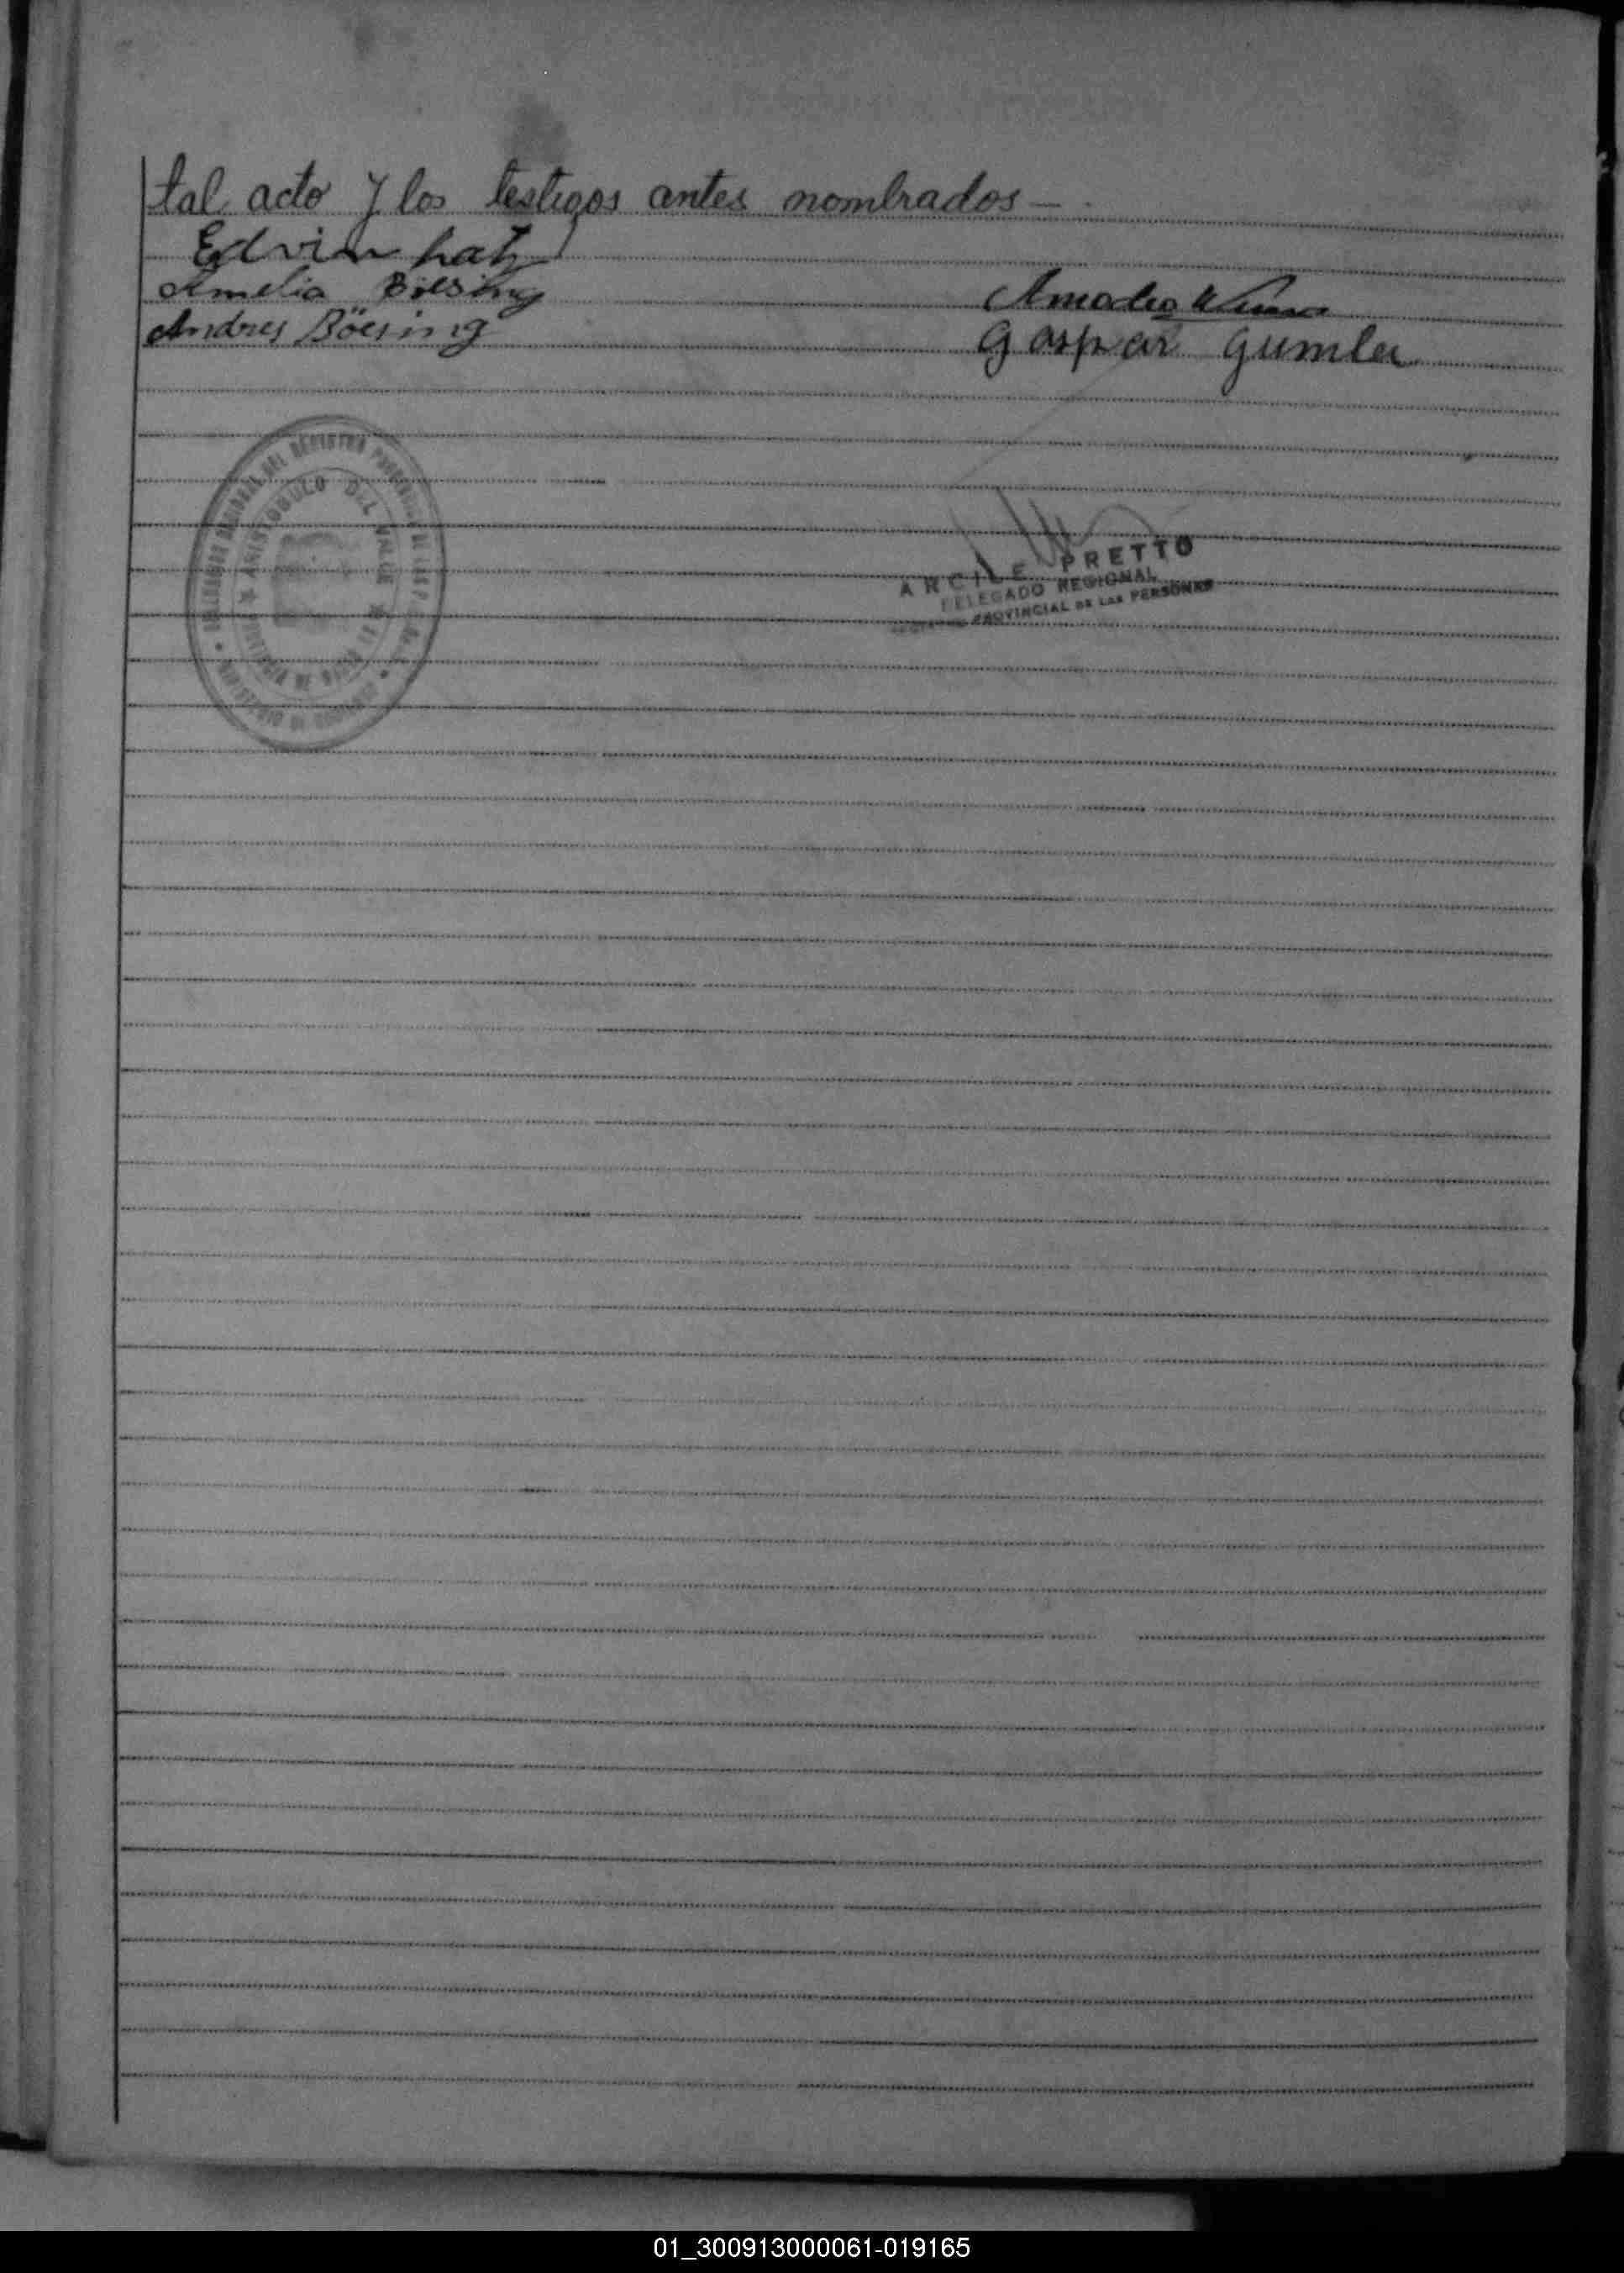 tal acto y los testigos antes nombrados —
Edvin hatz
Amelia Böesing
Andres Böesing
Amadeo
Gaspar Gumler
DEL REGISTRO PROVINCIAL DE LAS
ARISTOBULO DEL VALLE
ARCILE PRETTO
DELEGADO REGIONAL
PROVINCIAL DE LAS PERSONAS
01_300913000061-019165